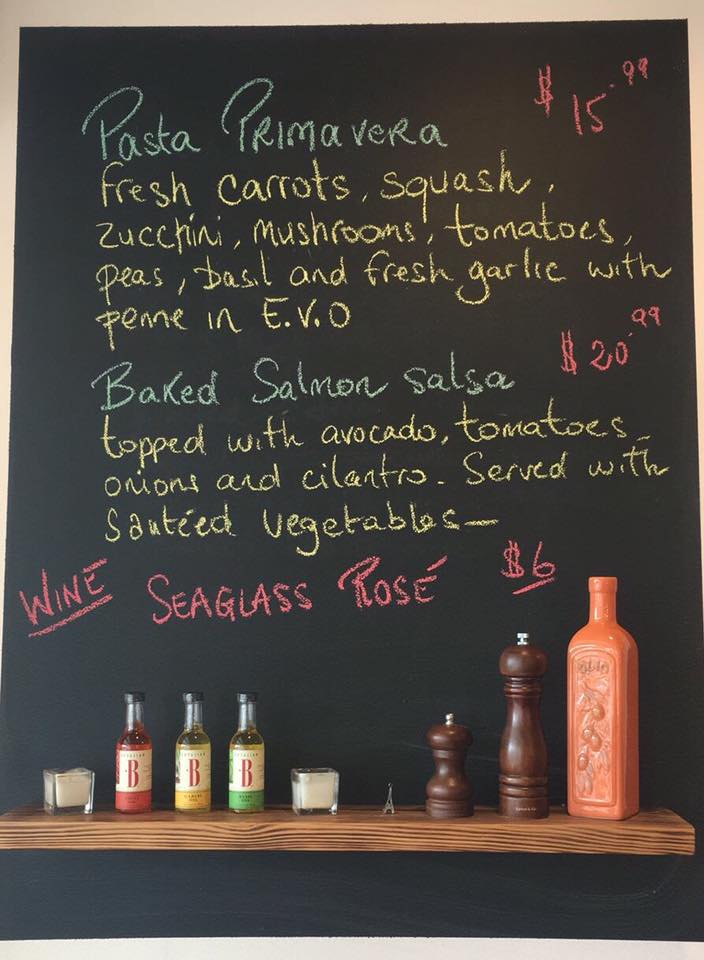 Pasta Primavera $15.99
fresh carrots, squash,
zucchini, mushrooms, tomatoes,
peas, basil and fresh garlic with
penne in E.V.O
$20.99
Baked Salmon salsa
topped with avocado, tomatoes
onions and cilantro. Served with
Sautéed vegetables—
WINE SEAGLASS ROSÉ $6
OLIO
B
B
B